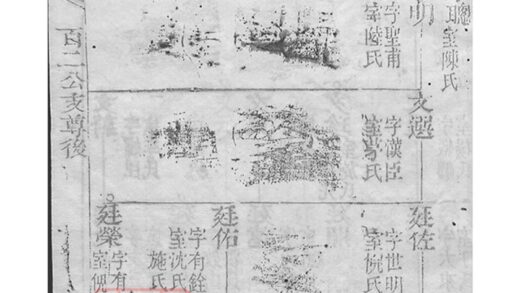 室陳氏
明
字聖甫
室陸氏
文選
字漢臣
室氏
廷佐
字世明
室倪氏
廷佑
字有銓
室沈氏
施氏
廷榮
字有
室倪
百二公支尊後